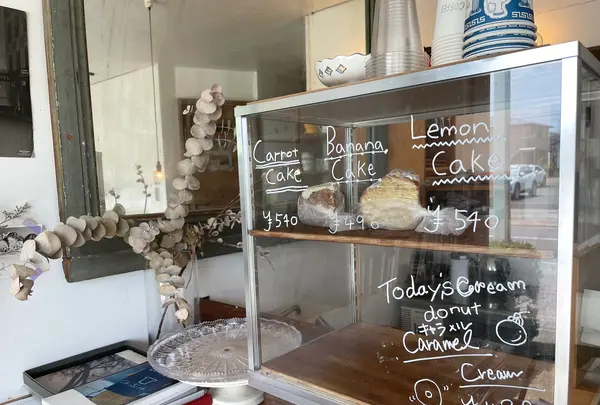 Carrot
Cake
¥540
Banana
Cake
¥490
Lemon
Cake
¥540
Today's Cream
donut
キャラメル
Caramel
Cream